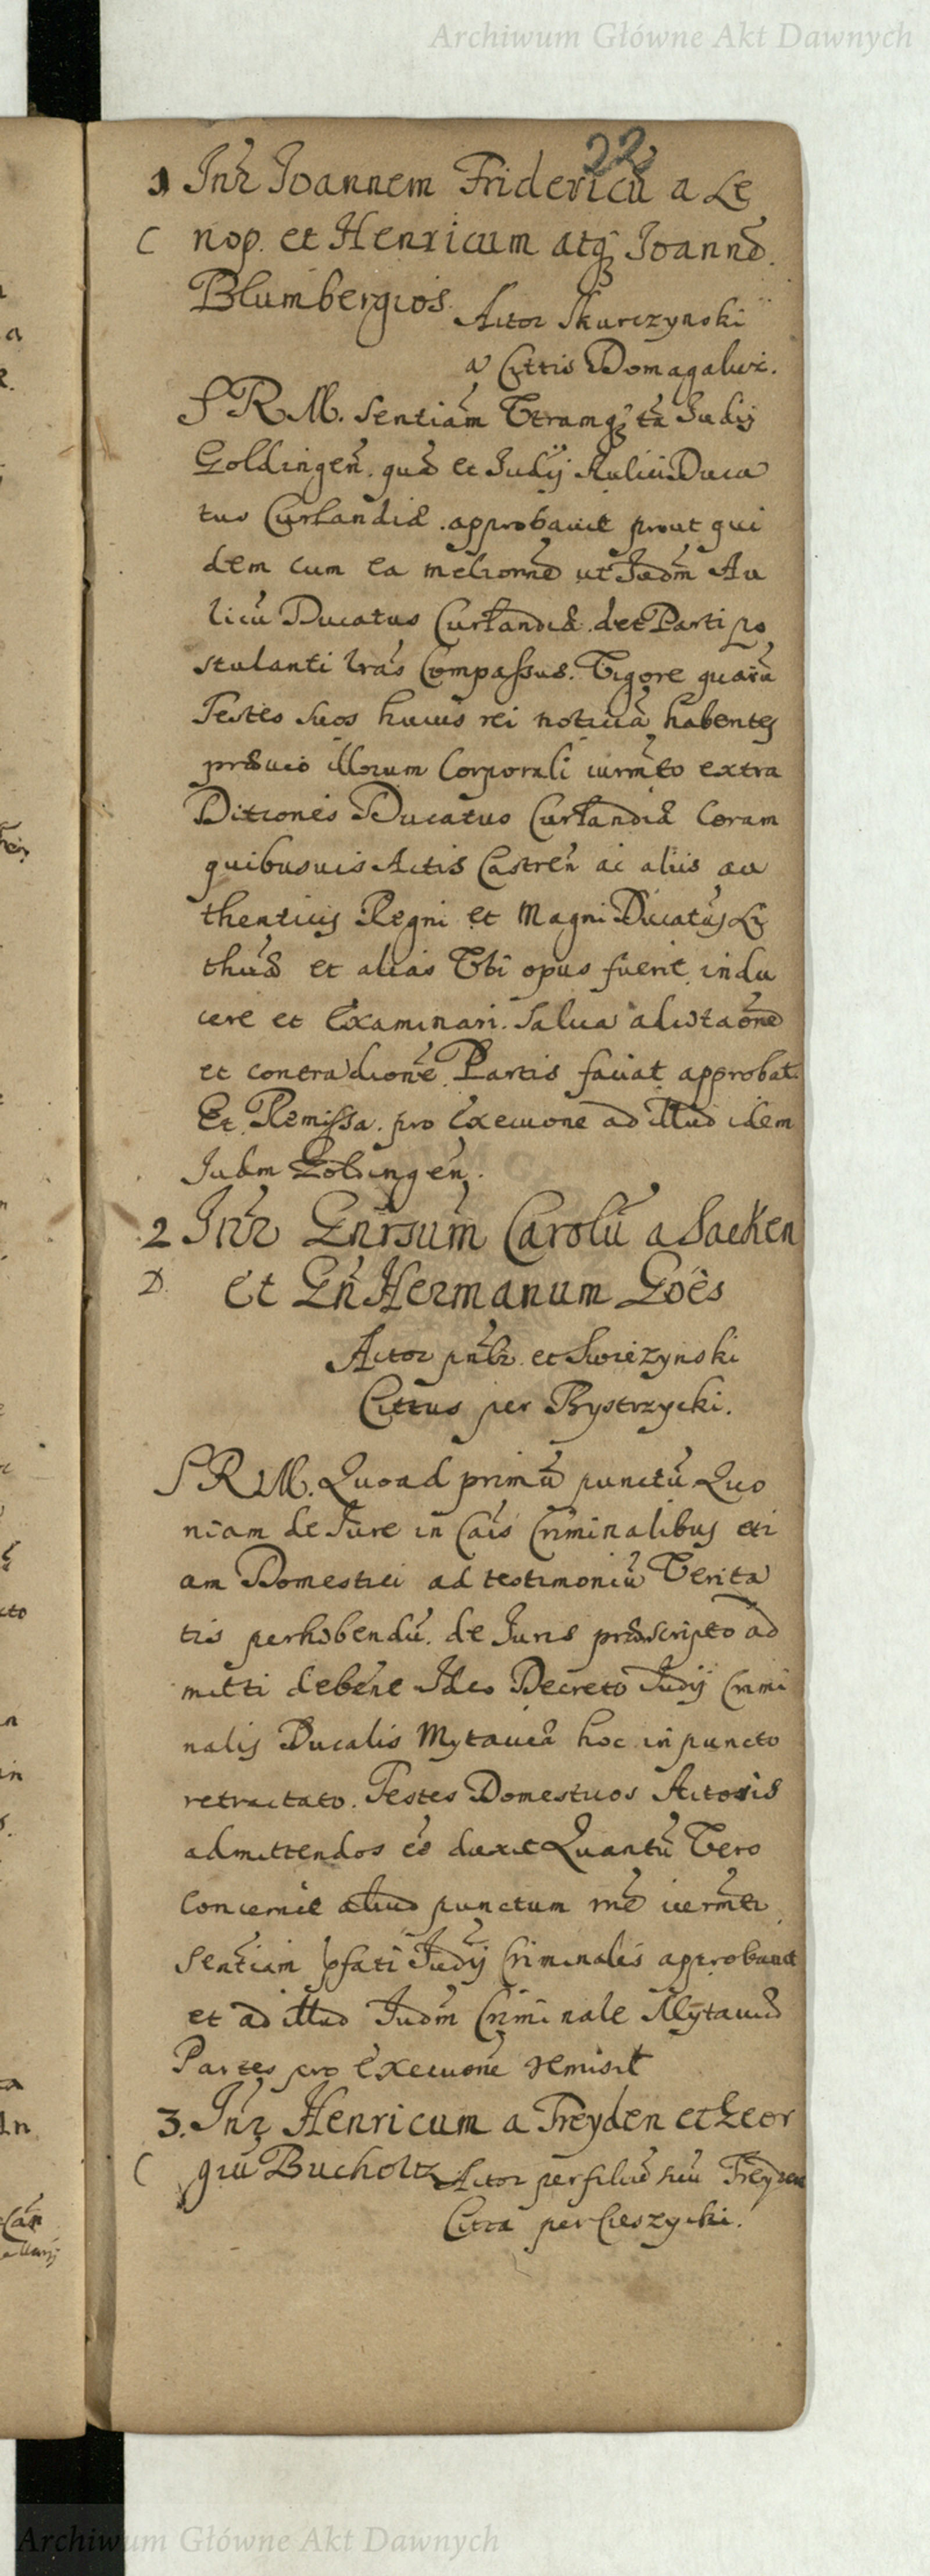 Archiwum Główne Akt Dawnych
22
1 Inr̃ Joannem Fridericū a Le
C nop. et Henricum atq̃ Joannē.
Blumbergios. Actor Skurczynski
a Cittis Domagalwi.
S R M. Sentiam̃ Vtramq̃ tã Judij
Goldingen̄. quã et Judÿ Aulici Duca
tus Curlandiæ. approbavit prout qui
dem cum ea meliorñe ut Judm̃ Au
licū Ducatus Curlandiæ. det Parti po
stulanti lrãs Compassus. Vigore quarū
Testes suos huius rei notitiã habentes
prævio illorum Corporali iurm̃to extra
Ditiones Ducatus Curlandiæ Coram
quibusuis Actis Castren̄ ac aliis au
thenticis Regni et Magni Ducatus Li
thuæ et alias Vbi opus fuerit indu
cere et Examinari. Salua
et contradicone Partis approbat.
Et Remissa. pro Execuone ad illud idem
Judm Goldingen̄.
2 Inr̃ Gnrsum̃ Carolū a Sacken
D. et Gn̄ Hermanum Goës
Actor et Swiezynski
Cittus per Bystrzycki.
S R M. Quoad primū punctū Quo
niam de Jure in Cais̃ Criminalibus eti
am Domestici ad testimoniū Verita
tis perhibendū. de Juris præscripto ad
mitti debere Ideo Decreto Judÿ Crimi
nalis Ducalis Mytaviæ hoc in puncto
retractato. Testes Domesticos Actoris
admittendos eē duxit Quantū Vero
Concernit aliud punctum iurm̃ti
Sentiam pfati Judij Criminalis approbavit
et ad illud Judm̃ Criminale Mÿtaviæ
Partes pro Execuone remisit
3. Inr̃ Henricum a Freyden et Geor
C giū Bucholtz Actor per filiū suū Freyden
Citta per Cieszycki.
Archiwum Główne Akt Dawnych